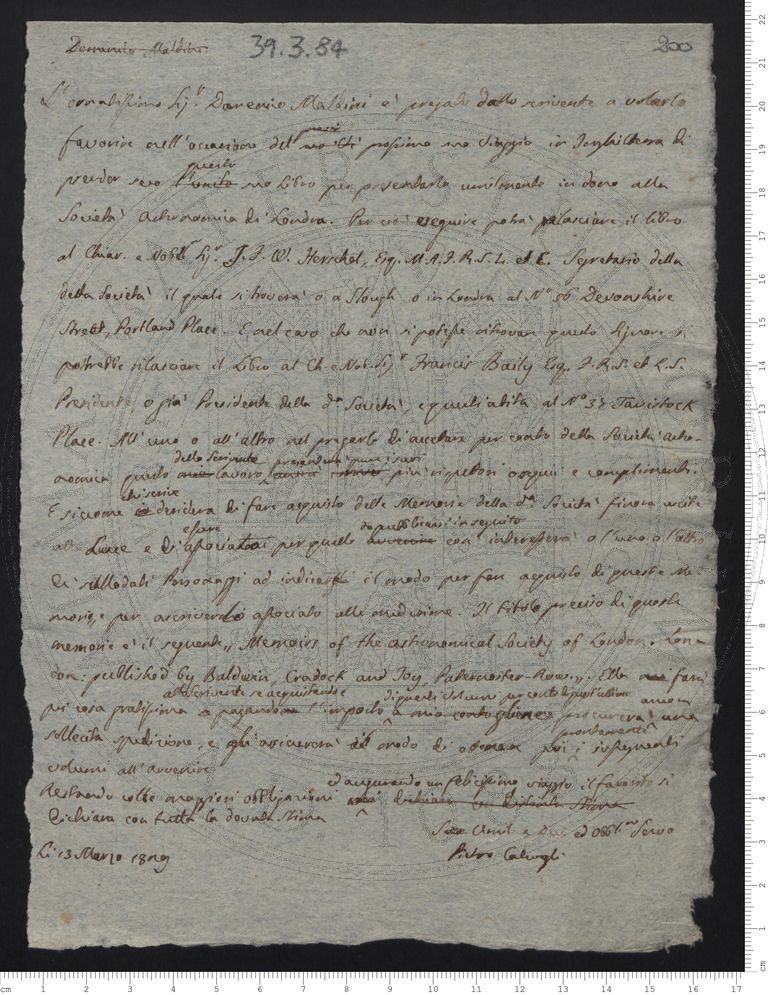 Domenico Maldini 39.3.84 200
L'ornatissimo Sig.r Domenico Maldini è pregato dallo scrivente a volerlo
favorire nell'occasione del prossimo suo viaggio in Inghilterra di
prender seco questo suo Libro per presentarlo umilmente in dono alla
Società Astronomica di Londra. Per ciò eseguire potrà rilasciare il libro
al Chiar. e Nob. Sig.r J. F. W. Herschel, Esq. M.A. F.R.S. L. et E. Segretario della
detta Società il quale si troverà o a Slough, o in Londra al N.o 56 Devonshire
Street, Portland Place. E nel caso che non si potesse ritrovare questo Signore si
potrebbe rilasciare il Libro al Ch. e Nob. Sig.r Francis Baily Esq. F.R.S. et L.S.
Presidente, o già Presidente della d.a Società, e quegli abita al N.o 37 Tavistock
Place. All'uno o all'altro nel pregarlo di accettare per conto della Società Astro-
dello scrivente presenterà pure i suoi
nomica questo lavoro più rispettosi ossequi e complimenti.
chi scrive
E siccome desidera di fare acquisto delle Memorie della d.a Società finora uscite
essere da pubblicarsi in seguito
alla Luce e di associato per quelle così interesserà o l'uno o l'altro
di sullodati Personaggi ad indicargli il modo per fare acquisto di queste Me-
morie, e per ascriverlo associato alle medesime. Il titolo preciso di queste
memorie è il seguente „ Memoirs of the Astronomical Society of London. Lon-
don: published by Baldwin, Cradock and Joy, Paternoster-Row. „. Ella farà
allo scrivente se acquistandoe di questi volumi per conto di quest'ultimo ancora
poi cosa gratissima pagandone l'importo a mio conto gliene procurerà una
prontamente
sollecita spedizione, e gli assicurerà il modo di ottenere poi i susseguenti
volumi all'avvenire
ed augurando un felicissimo viaggio il favorito si
Restando colle maggiori obbligazioni
dichiara con tutta la dovuta stima
Umil. e Dev. ed Obbl.mo Servo
Li 13 Marzo 1829 Pietro Caturegli